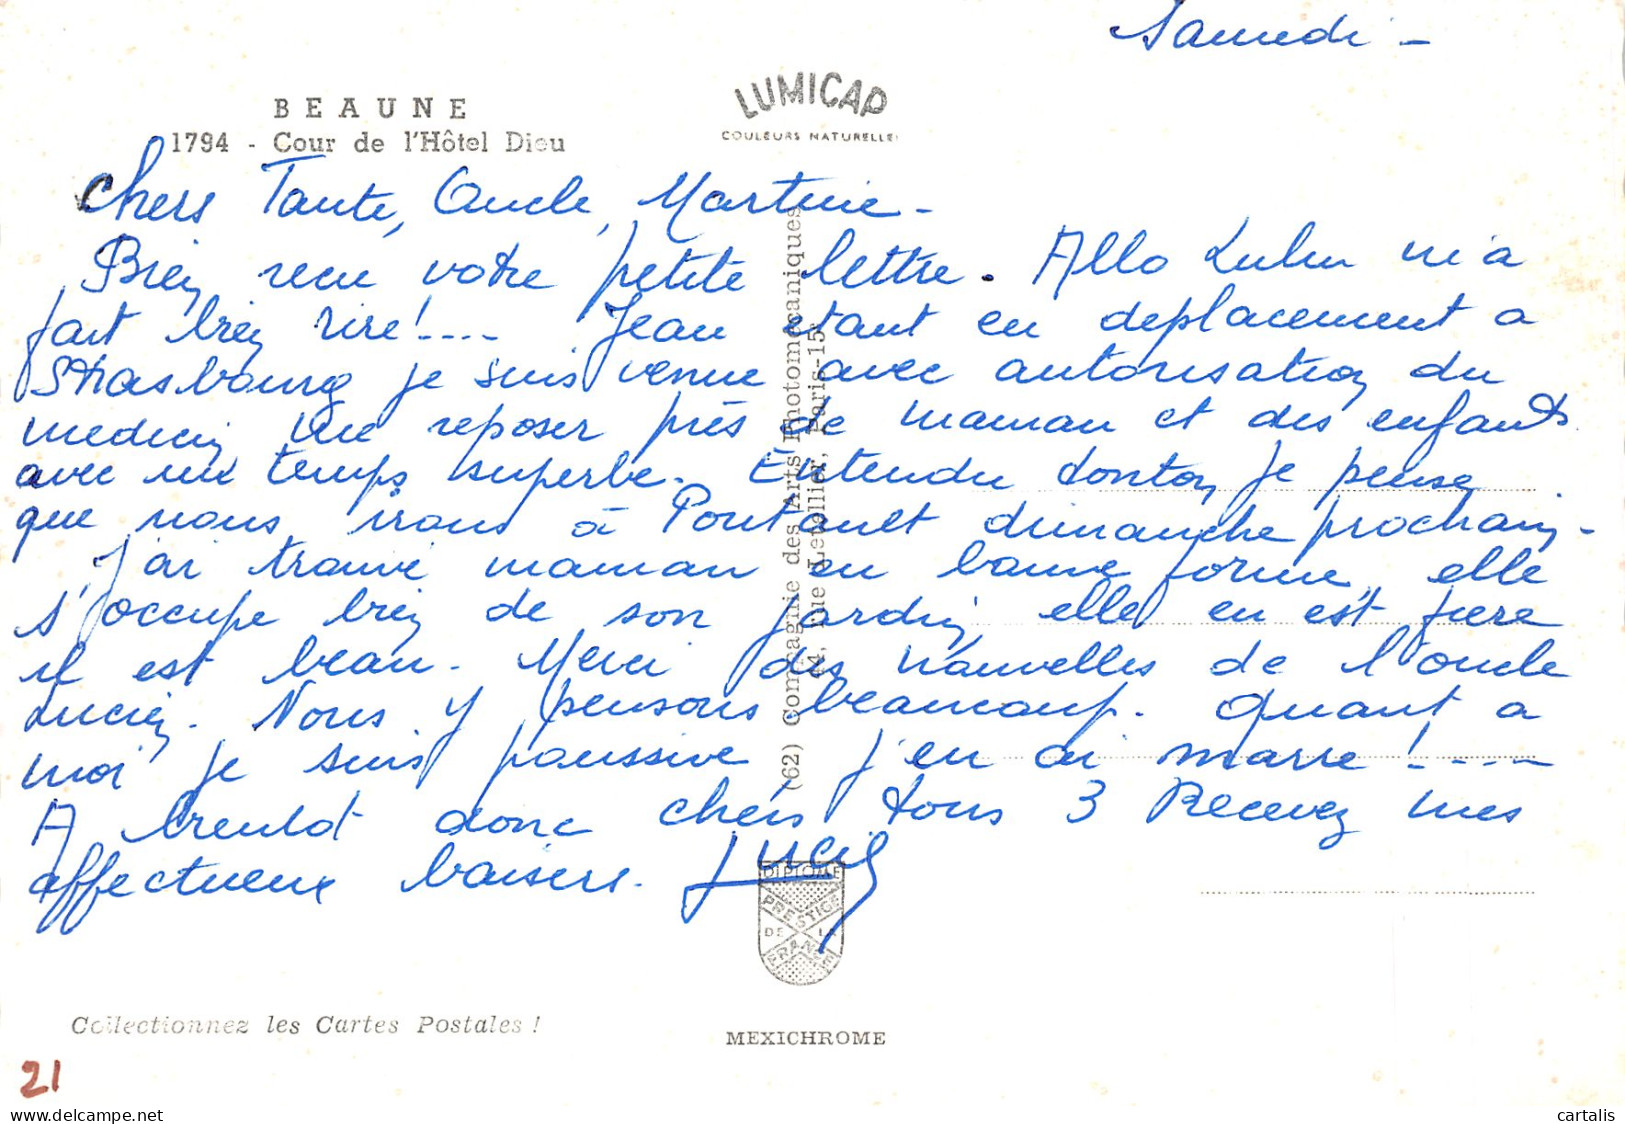 Samedi -
LUMICAP
COULEURS NATURELLES
BEAUNE
1794 - Cour de l'Hôtel Dieu
Chers Tante, Oncle, Martine -
Bien recu votre petite lettre. Allo Lulu m'a
fait bien rire!.... Jean etant en deplacement a
Strasbourg je suis venue avec autorisation du
medecin me reposer près de maman et des enfants
avec un temps superbe. Entendu tonton je pense
que nous irons à Pontault dimanche prochain -
J'ai trouvé maman en bonne forme, elle
s'occupe bien de son jardin, elle en est fiere
il est beau. Merci des nouvelles de l'oncle
Lucien. Nous y pensons beaucoup. Quant a
moi je suis poussive j'en ai marre! ----
A bientot donc chers tous 3 Recevez mes
affectueux baisers.
(62) Compagnie des Arts Photomécaniques
44, rue Letellier, Paris-15e
DIPLOME
PRESTIGE
DE LA
FRANCE
Collectionnez les Cartes Postales !
MEXICHROME
21
www.delcampe.net
cartalis